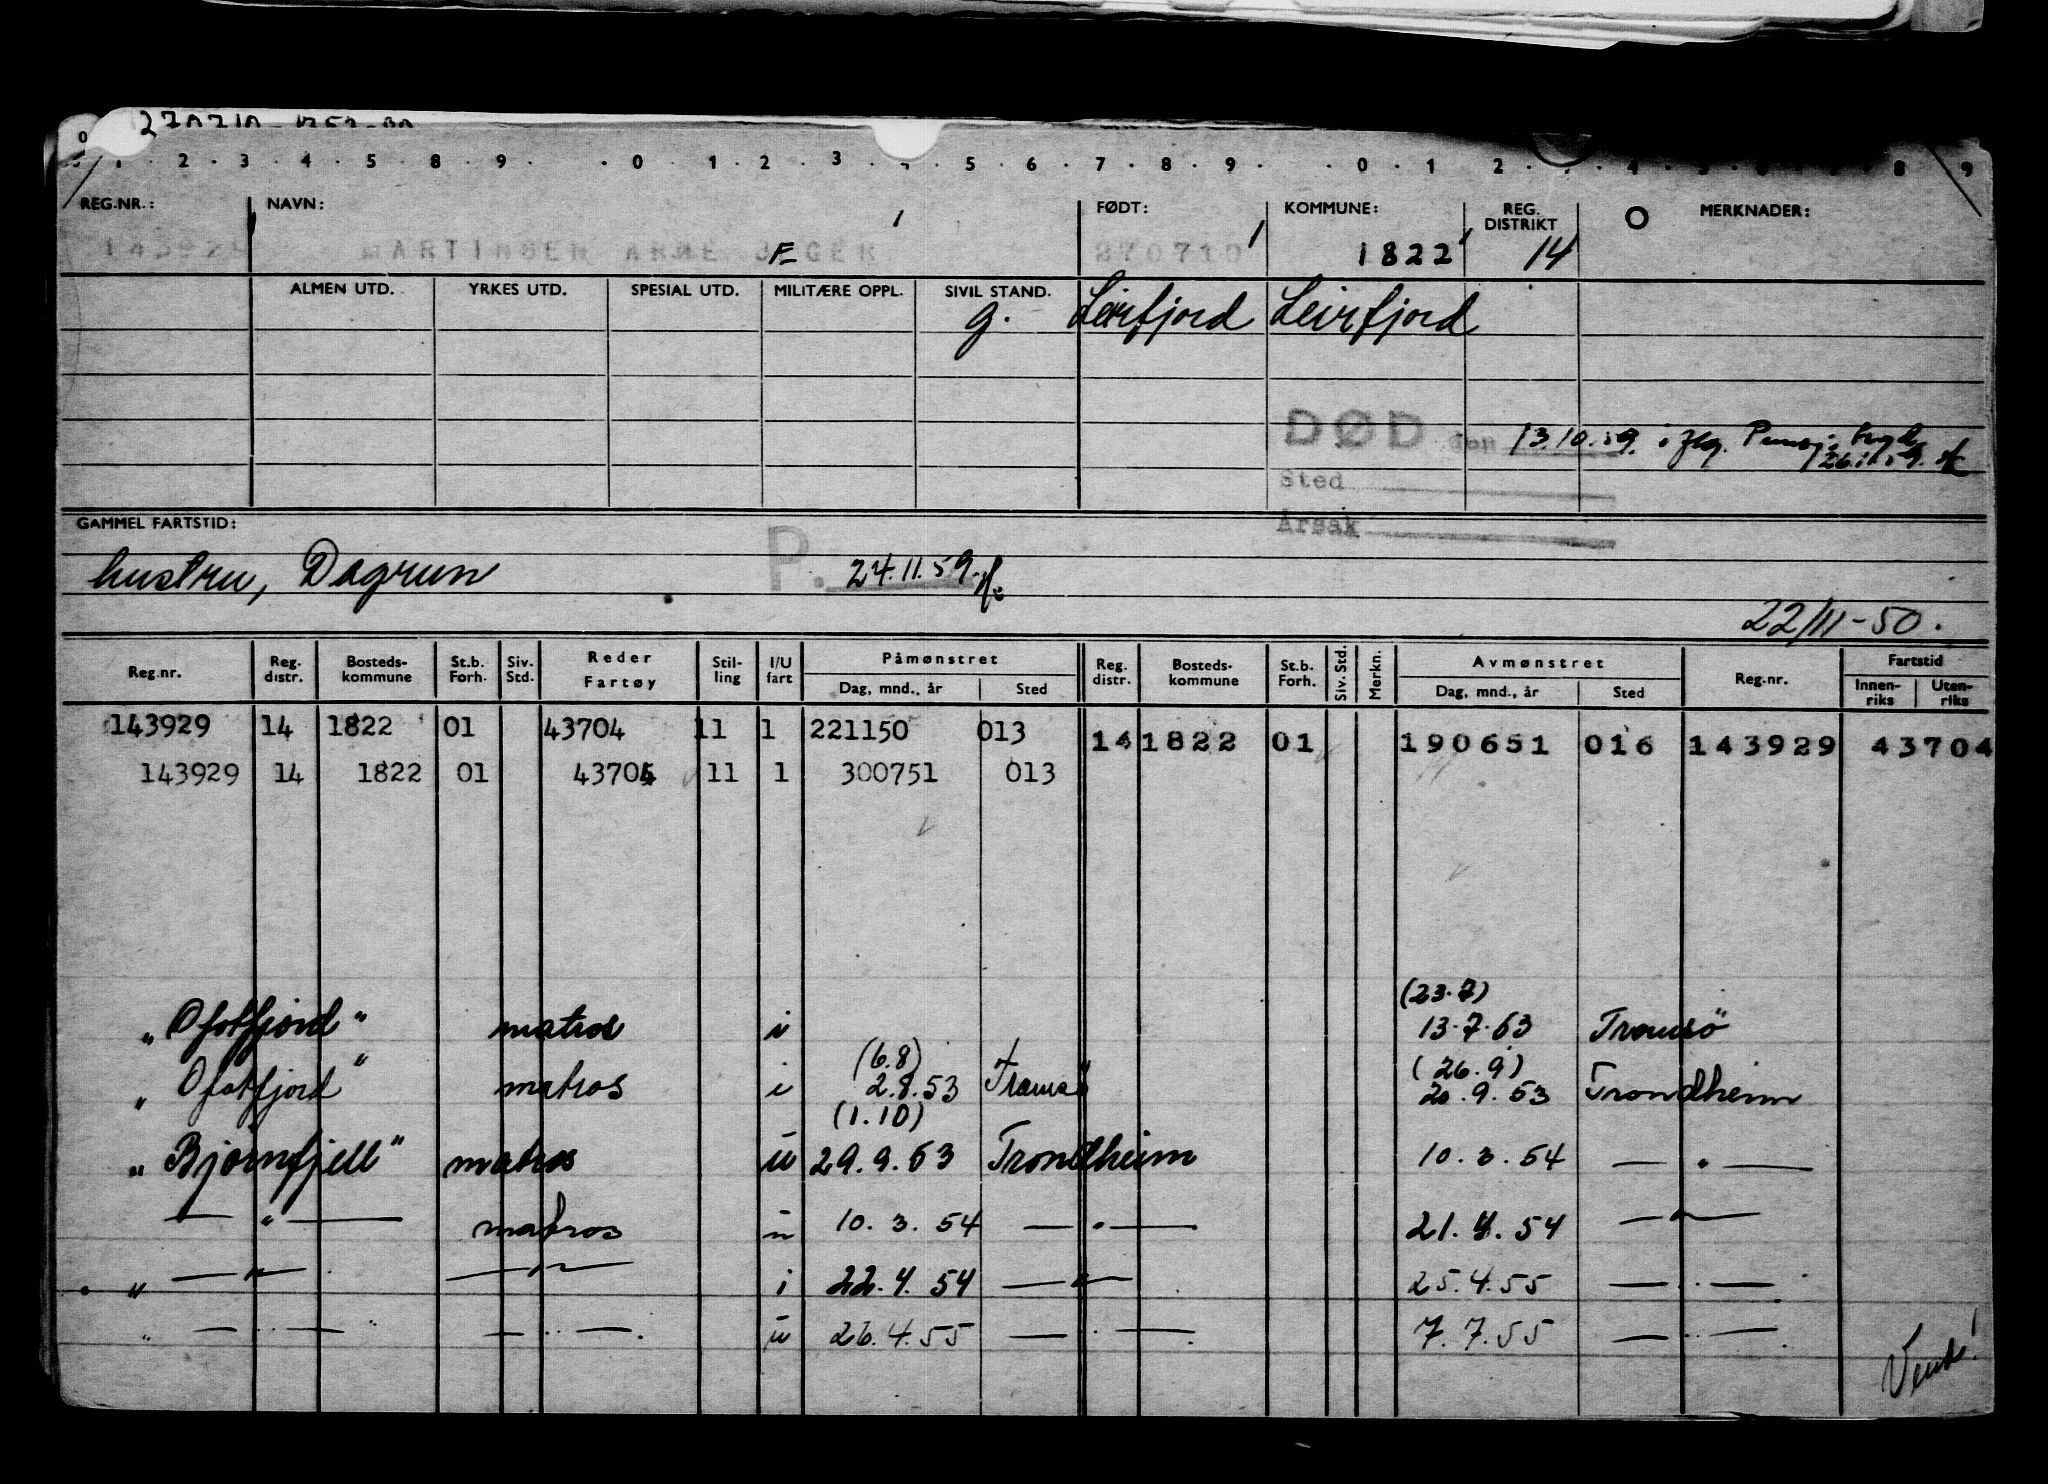 0 1 2 3 4 5 8 9 0 1 2 3 5 6 7 8 9 0 1 2 4 8 9
REG.NR.: NAVN: FØDT: KOMMUNE: REG. DISTRIKT MERKNADER:
MARTINSEN ARNE 270710 1822 14
ALMEN UTD. YRKES UTD. SPESIAL UTD. MILITÆRE OPPL. SIVIL STAND.
g. Leirfjord Leirfjord
DØD den 13.10.59. i flg.
Sted
Årsak
GAMMEL FARTSTID:
hustru, Dagrun P. 24.11.59.
22/11-50.
Reg.nr. Reg. distr. Bosteds-kommune St.b. Forh. Siv. Std. Reder Fartøy Stil-ling I/U fart Påmønstret Reg. distr. Bosteds-kommune St.b. Forh. Siv. Std. Merkn. Avmønstret Reg.nr. Fartstid
Dag, mnd., år Sted Dag, mnd., år Sted Innen-riks Uten-riks
143929 14 1822 01 43704 11 1 221150 013 14 1822 01 190651 016 143929 43704
143929 14 1822 01 43704 11 1 300751 013
(23.7)
"Ofotfjord" matros i 13.7.53 Tromsö
(6.8) (26.9)
"Ofotfjord" matros i 2.8.53 Tromsö 20.9.53 Trondheim
(1.10)
"Bjørnfjell" matros u 29.9.53 Trondheim 10.3.54 — " —
— " — matros u 10.3.54 — " — 21.4.54 — " —
" — " — — " — i 22.4.54 — " — 25.4.55 — " —
" — " — " — " — u 26.4.55 — " — 7.7.55 — " —
Vend!